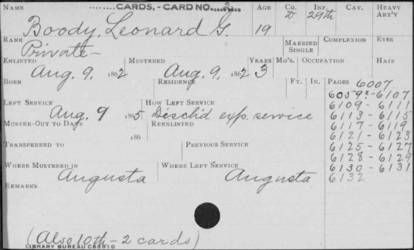 CARDS, - CARD NO. 3 AGE Co. INF. CAV. HEAVY ART'Y
Boody, Leonard G. 19 D 29th
RANK MARRIED SINGLE COMPLEXION EYES
Private
ENLISTED MUSTERED YEARS MO'S. OCCUPATION HAIR
Aug. 9, 1862 Aug. 9, 1862 3
BORN RESIDENCE FT. IN. PAGES 6007
6059-6107
LEFT SERVICE HOW LEFT SERVICE 6109-6111
Aug. 9 1865 Disch'd exp. service 6113-6115
MUSTER-OUT TO DATE REENLISTED 6117-6119
186 6121-6123
TRANSFERRED TO PREVIOUS SERVICE 6125-6127
6128-6129
WHERE MUSTERED IN WHERE LEFT SERVICE 6130-6131
Augusta Augusta 6132
REMARKS
(Also 10th - 2 cards)
LIBRARY BUREAU